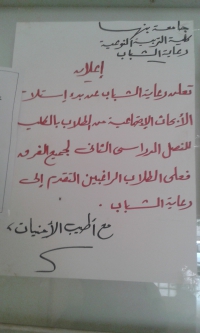 جامعة بنها
كلية التربية النوعية
رعاية الشباب
إعلان
تعلن رعاية الشباب عن بدء إستلام
الأبحاث الإجتماعية من الطلاب بالكلية
للفصل الدراسى الثانى لجميع الفرق
فعلى الطلاب الراغبين التقدم إلى
رعاية الشباب .
مع أطيب الأمنيات ،